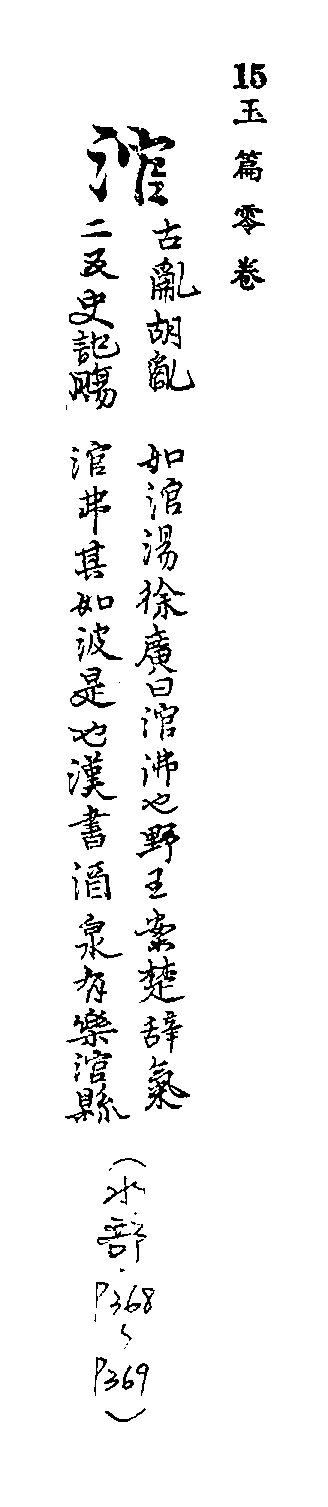 15玉篇零卷
涫
古亂胡亂
二反史記膓
如涫湯徐廣曰涫沸也野王案楚辭氣
涫弗其如波是也漢書酒泉有樂涫縣
(水部.P368~P369)